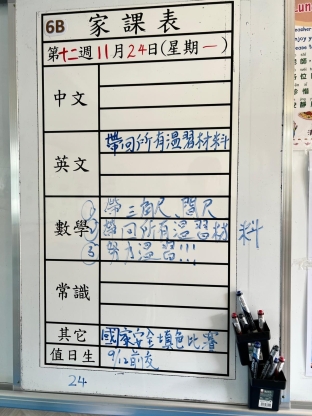 6B 家課表
第十二週11月24日(星期一)
中文
英文 帶回所有溫習材料
數學 ① 帶三角尺、間尺
② 帶回所有溫習材料
③ 努力溫習!!!
常識
其它 國家安全填色比賽
值日生 9/12前交
24